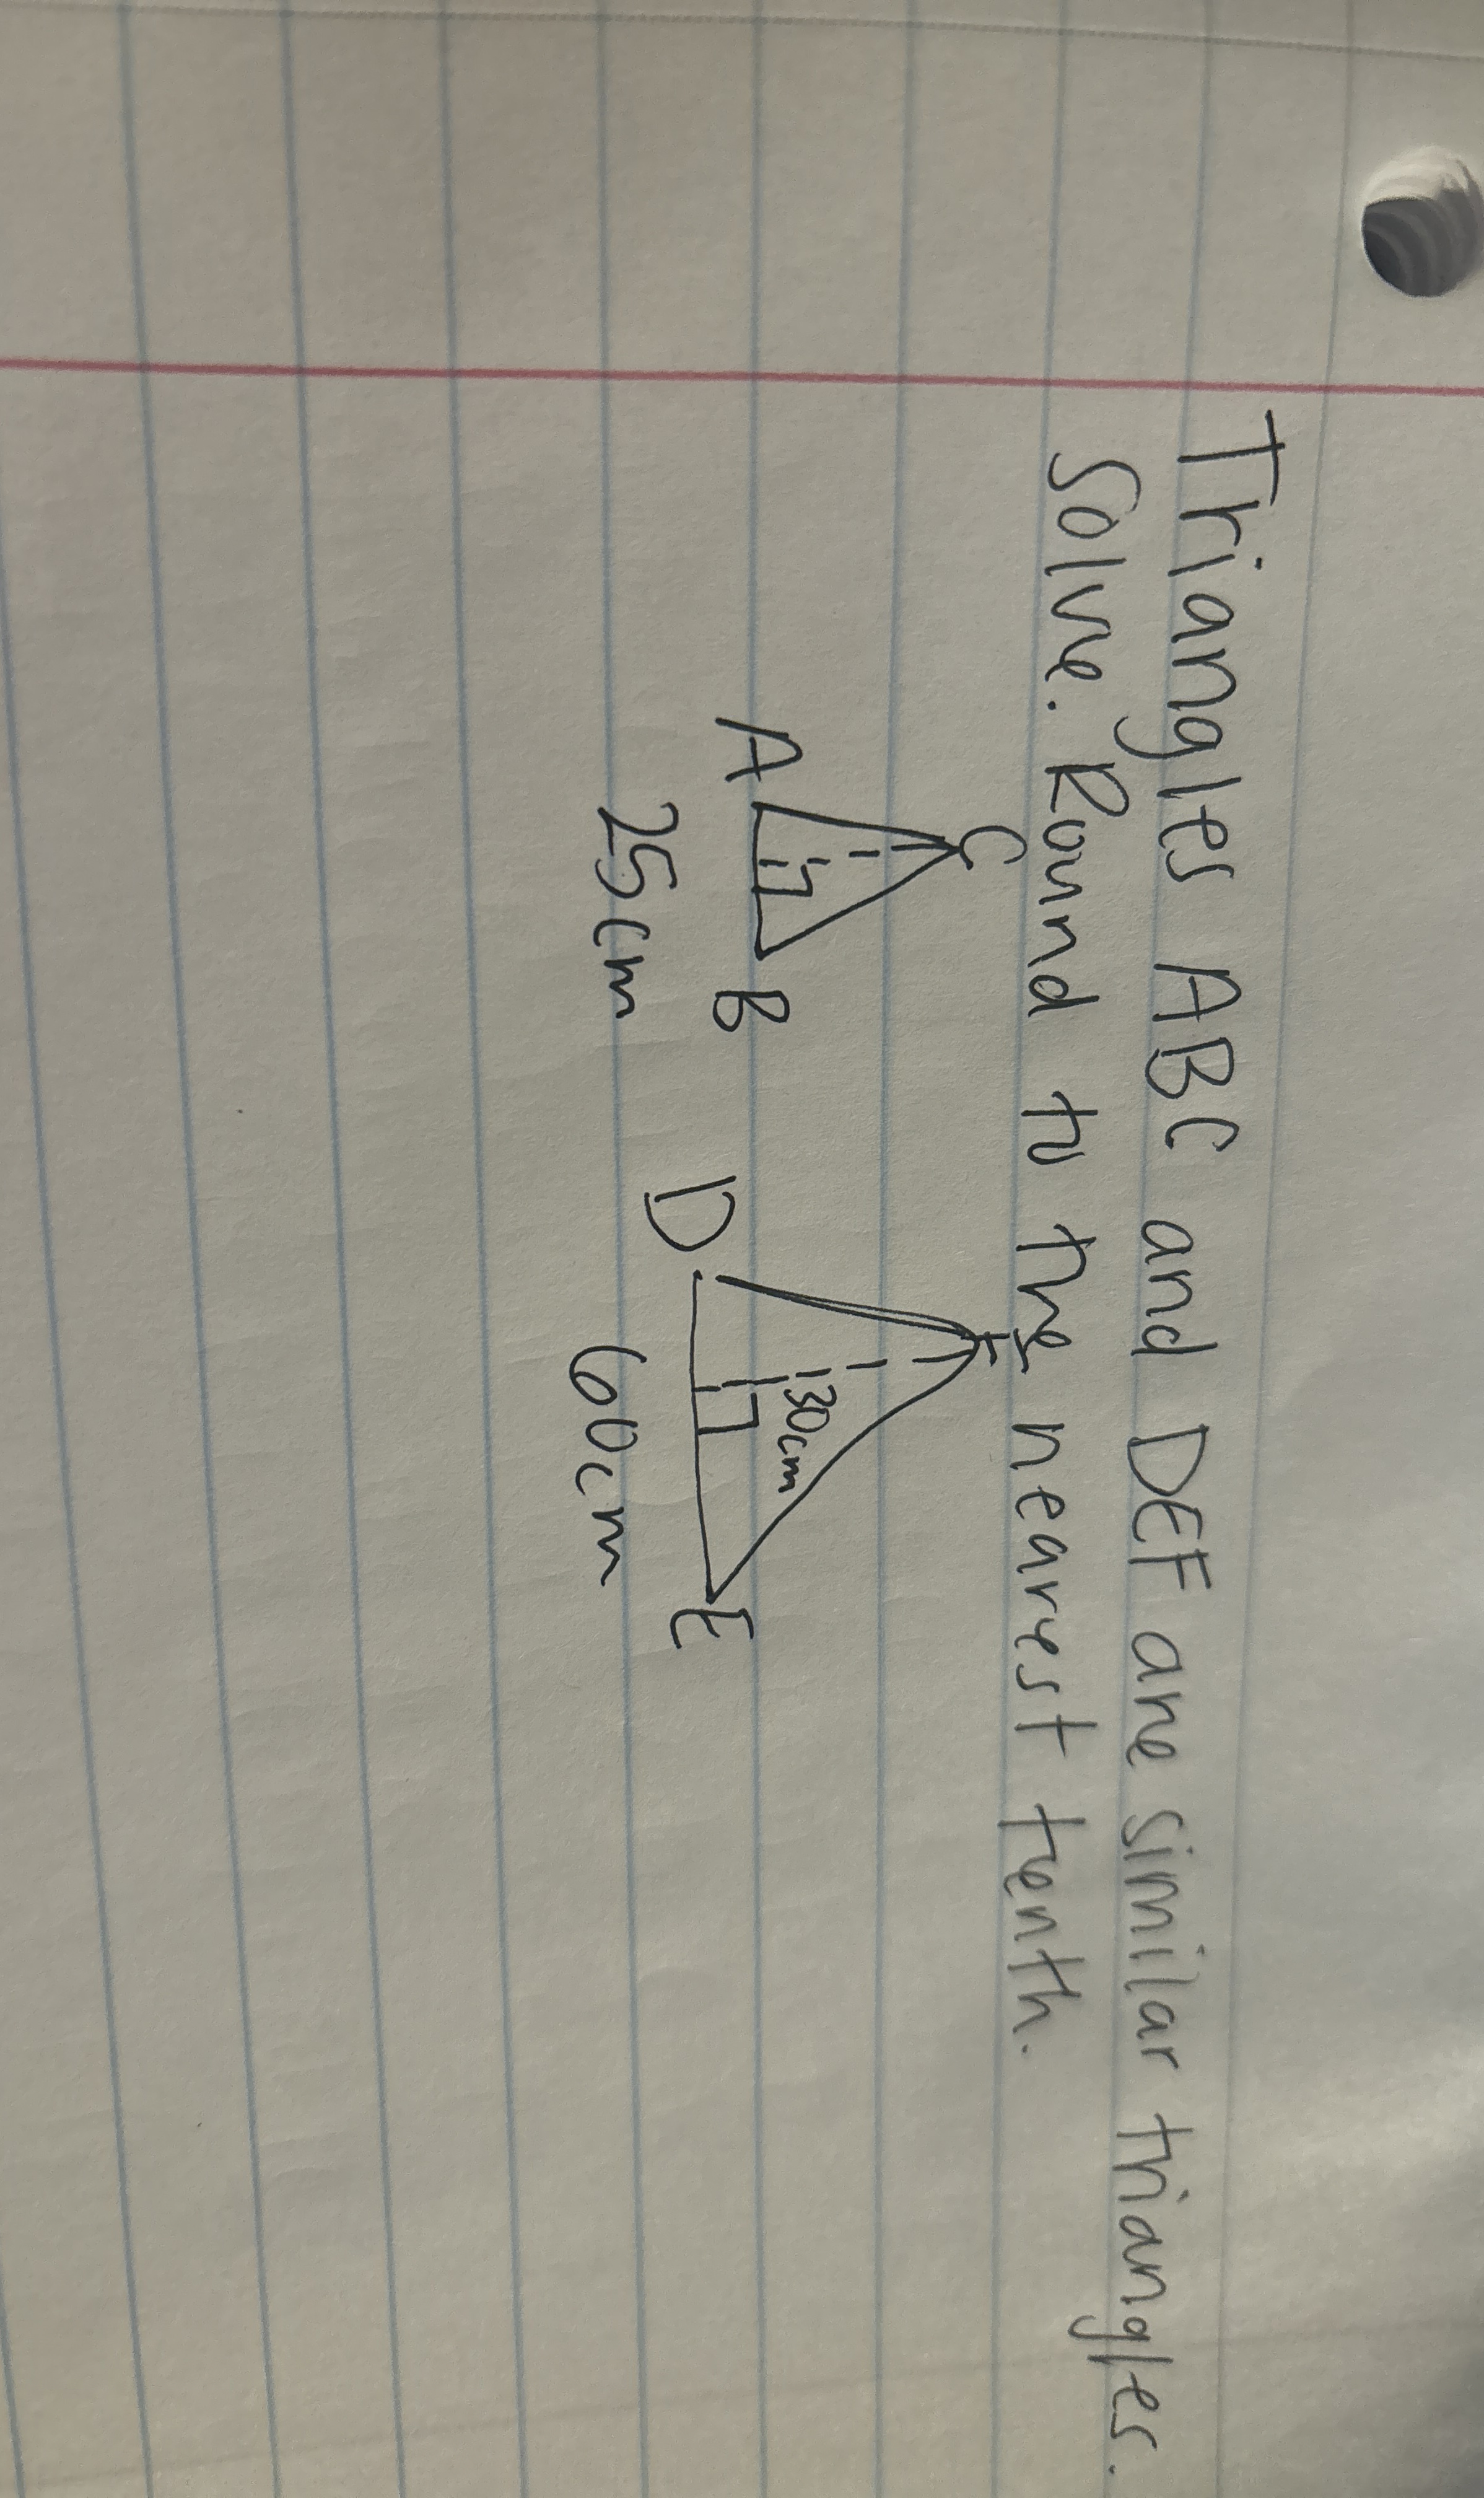 Triangles ABC and DEF are similar triangles.
Solve. Round to the nearest tenth.
C
F
30cm
A
B
D
E
25cm
60cm